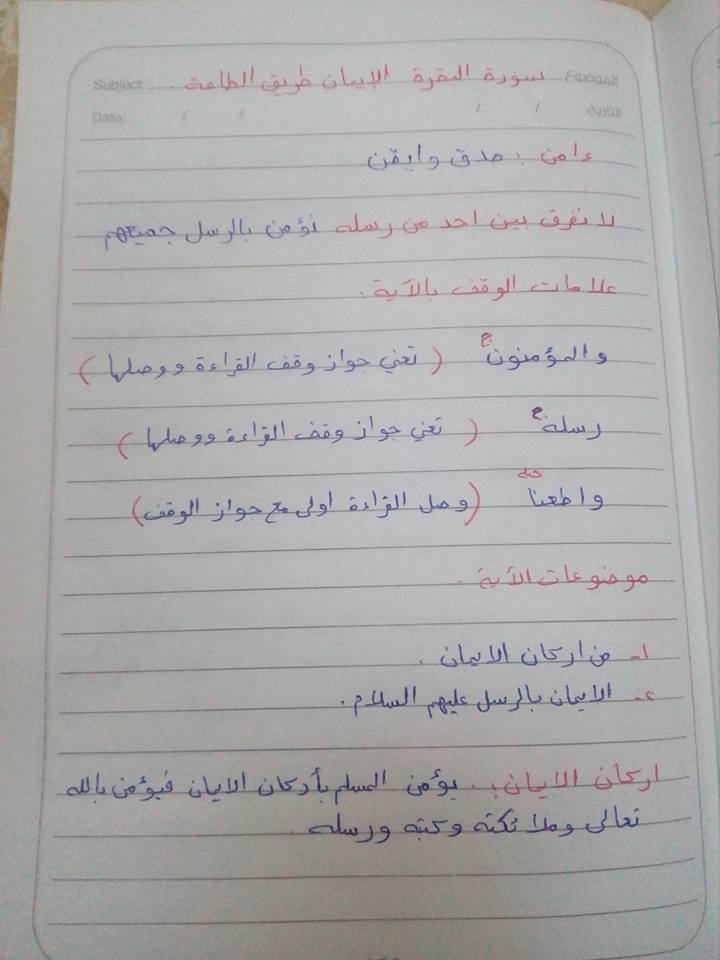 Subject سورة البقرة الإيمان طريق الطاعة . الموضوع
Date: / / / / التاريخ:
ءامن : صدق وايقن
لا نفرق بين احد من رسله نؤمن بالرسل جميعهم
علامات الوقف بالآية :
والمؤمنون ج ( تعني جواز وقف القراءة ووصلها )
رسله ج ( تعني جواز وقف القراءة ووصلها )
واطعنا صلى (وصل القراءة اولى مع جواز الوقف)
موضوعات الأية .
١- من اركان الايمان .
٢- الايمان بالرسل عليهم السلام .
اركان الايمان : يؤمن المسلم بأركان الايمان فيؤمن بالله
تعالى وملائكته وكتبه ورسله .